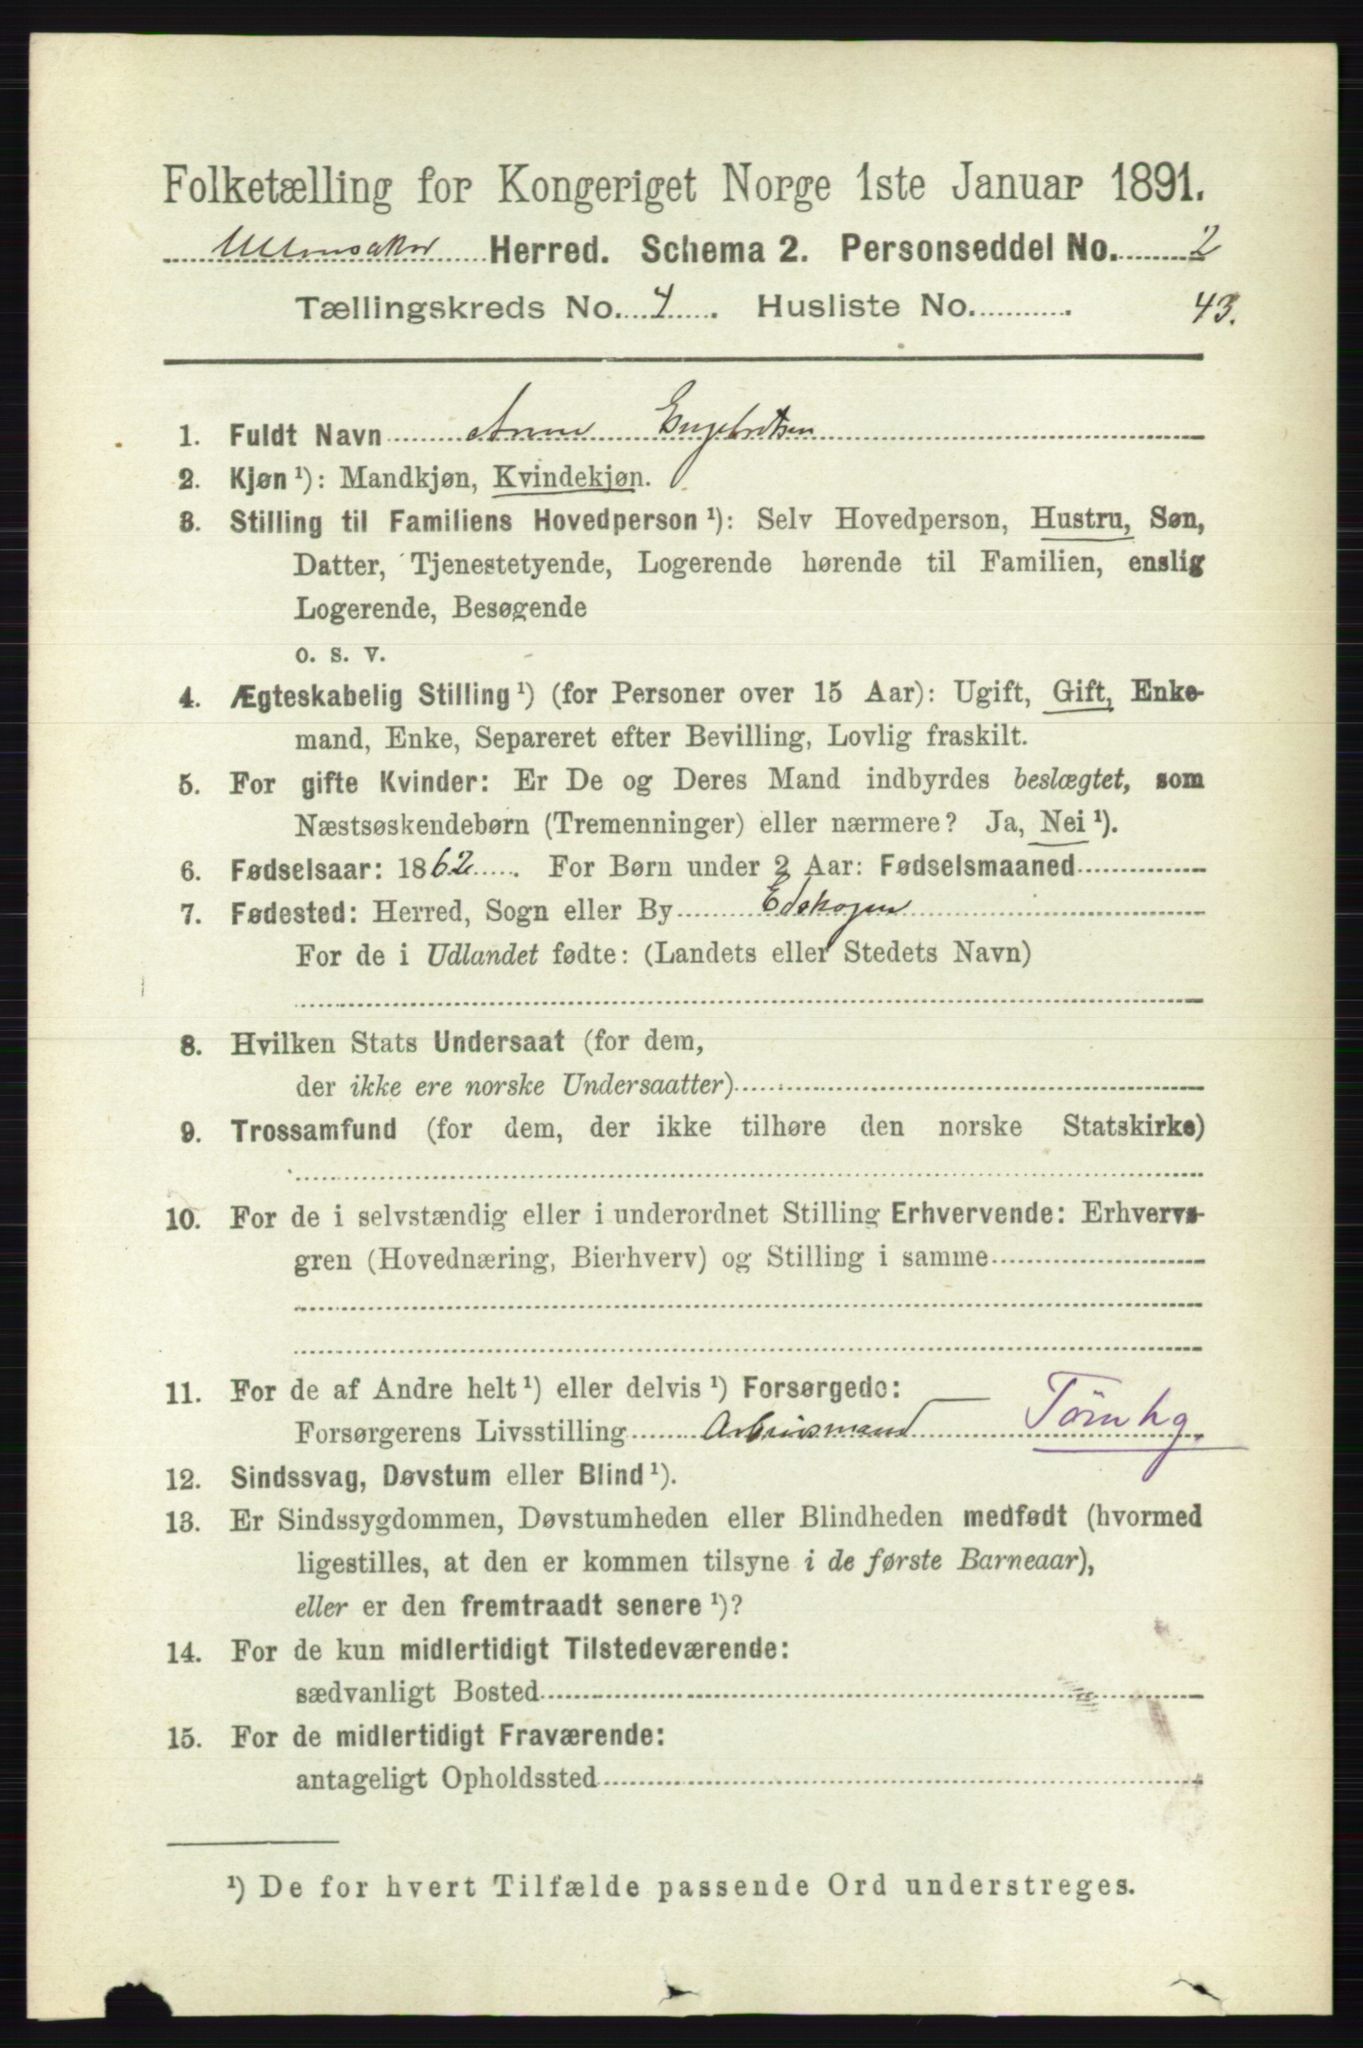 Folketælling for Kongeriget Norge 1ste Januar 1891.
Ullensaker Herred. Schema 2. Personseddel No. 2
Tællingskreds No. 4. Husliste No. 43.
1. Fuldt Navn Anne Engebretsen
2. Kjøn ¹): Mandkjøn, Kvindekjøn.
3. Stilling til Familiens Hovedperson ¹): Selv Hovedperson, Hustru, Søn,
Datter, Tjenestetyende, Logerende hørende til Familien, enslig
Logerende, Besøgende
o. s. v.
4. Ægteskabelig Stilling ¹) (for Personer over 15 Aar): Ugift, Gift, Enke-
mand, Enke, Separeret efter Bevilling, Lovlig fraskilt.
5. For gifte Kvinder: Er De og Deres Mand indbyrdes beslægtet, som
Næstsøskendebørn (Tremenninger) eller nærmere? Ja, Nei ¹).
6. Fødselsaar: 1862. For Børn under 2 Aar: Fødselsmaaned
7. Fødested: Herred, Sogn eller By Edskogen
For de i Udlandet fødte: (Landets eller Stedets Navn)
8. Hvilken Stats Undersaat (for dem,
der ikke ere norske Undersaatter)
9. Trossamfund (for dem, der ikke tilhøre den norske Statskirke)
10. For de i selvstændig eller i underordnet Stilling Erhvervende: Erhvervs-
gren (Hovednæring, Bierhverv) og Stilling i samme
11. For de af Andre helt ¹) eller delvis ¹) Forsørgede:
Forsørgerens Livsstilling Arbeidsmand
12. Sindssvag, Døvstum eller Blind ¹).
13. Er Sindssygdommen, Døvstumheden eller Blindheden medfødt (hvormed
ligestilles, at den er kommen tilsyne i de første Barneaar),
eller er den fremtraadt senere ¹)?
14. For de kun midlertidigt Tilstedeværende:
sædvanligt Bosted
15. For de midlertidigt Fraværende:
antageligt Opholdssted
¹) De for hvert Tilfælde passende Ord understreges.